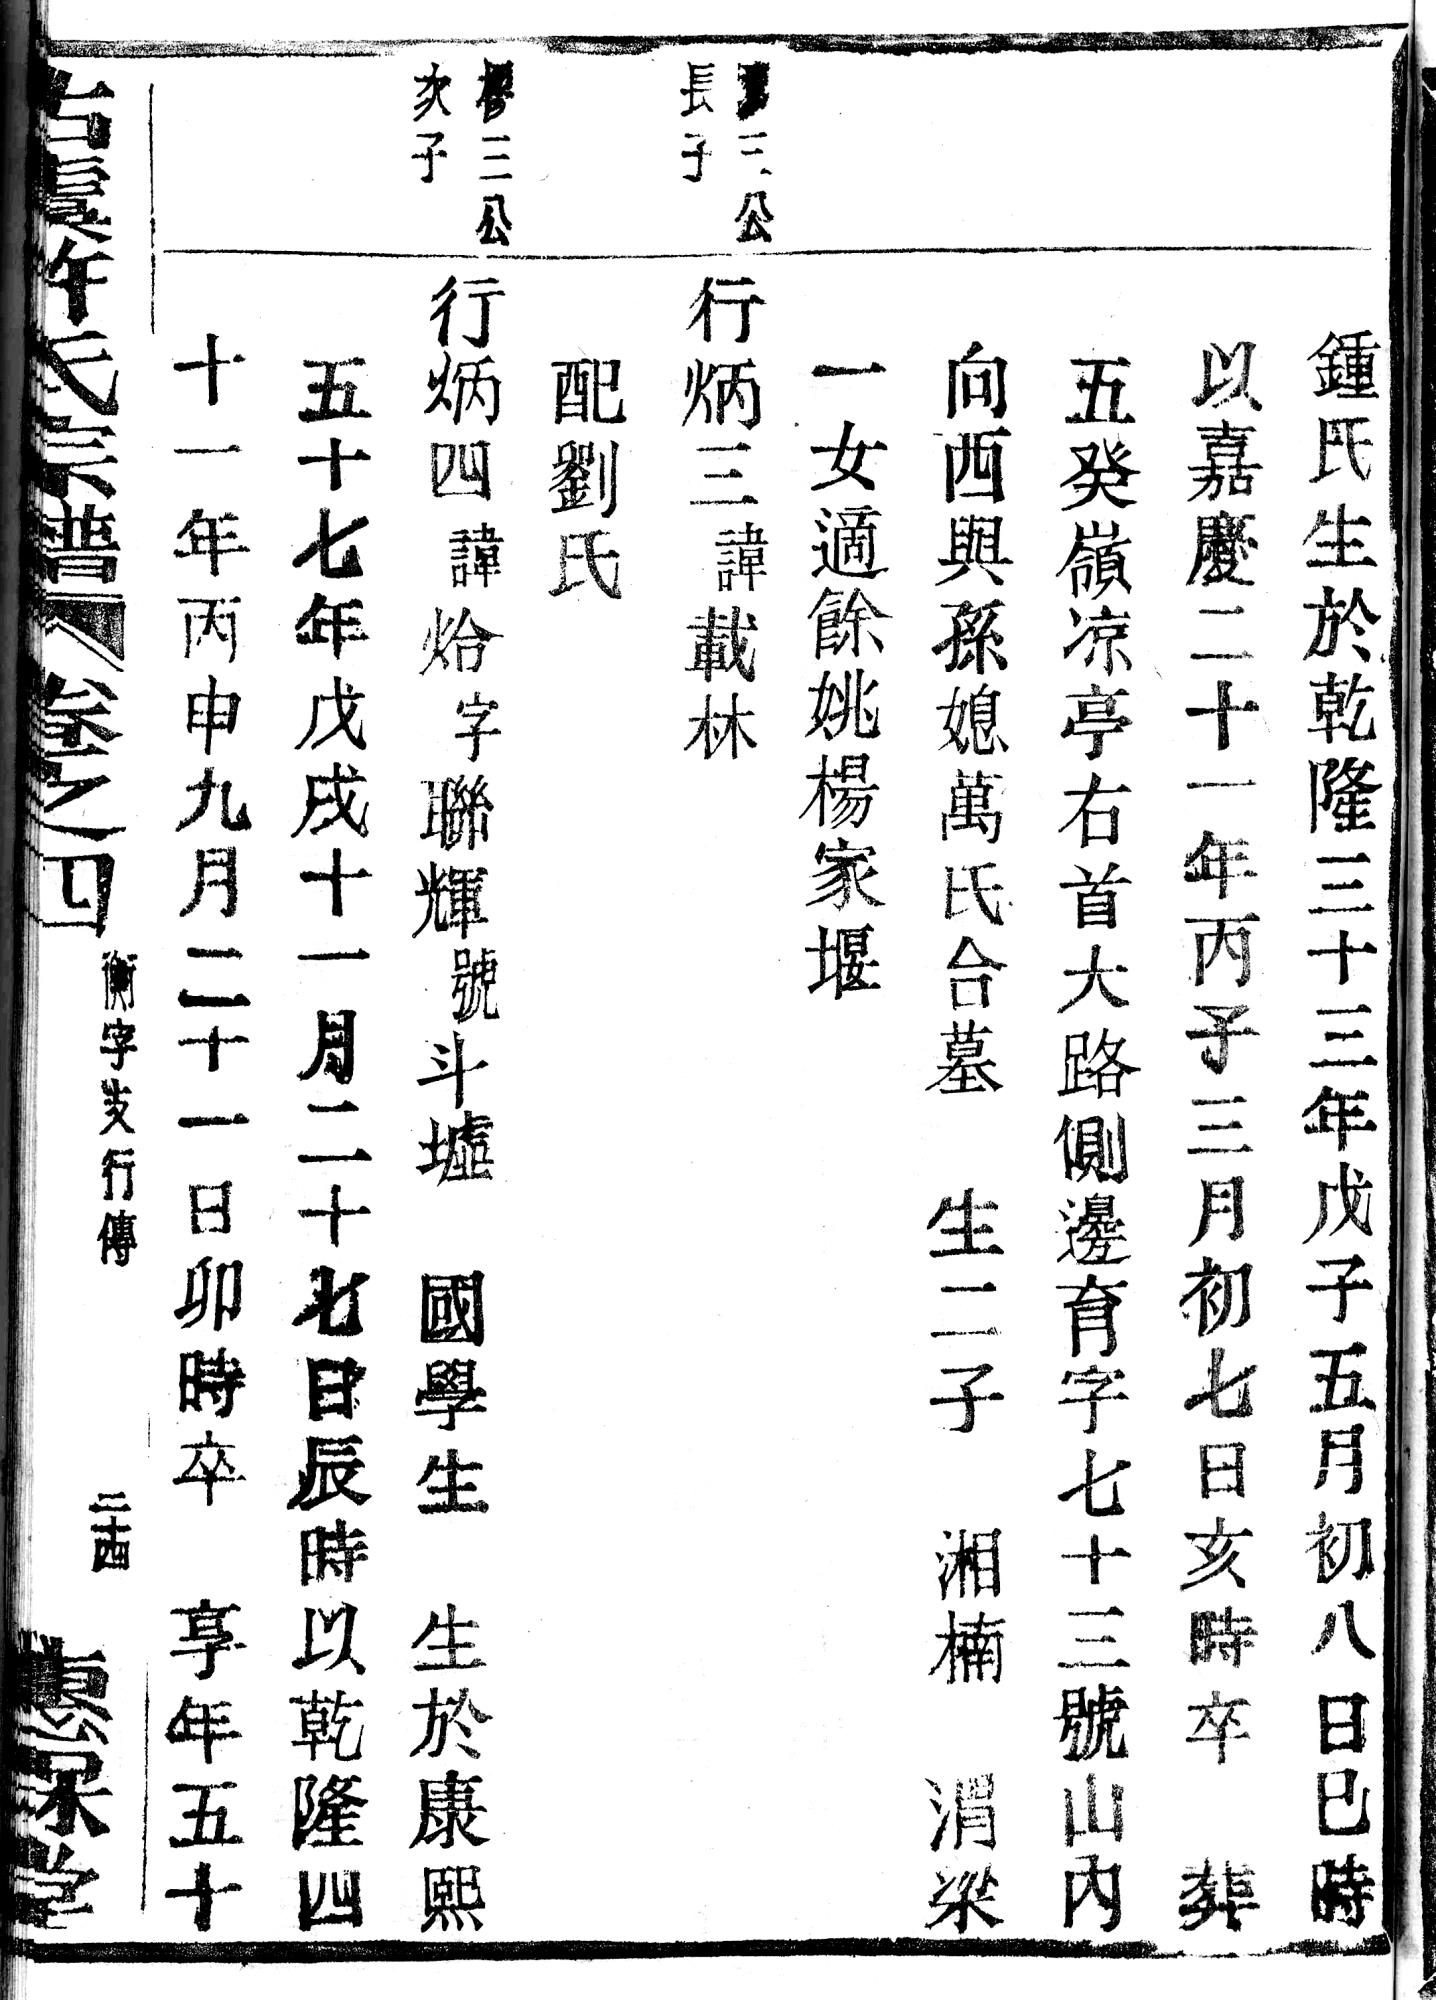 鍾氏生於乾隆三十三年戊子五月初八日巳時
以嘉慶二十一年丙子三月初七日亥時卒　葬
五癸嶺凉亭右首大路側邊育字七十三號山內
向西與孫媳萬氏合墓　生二子　湘楠　渭梁
一女適餘姚楊家堰
三公
長子
行炳三諱載林
配劉氏
樛三公
次子
行炳四諱烚字聯輝號斗墟　國學生　生於康熙
五十七年戊戌十一月二十七日辰時以乾隆四
十一年丙申九月二十一日卯時卒　享年五十
古虞許氏宗譜 卷之四 衡字支行傳 三十四 堂